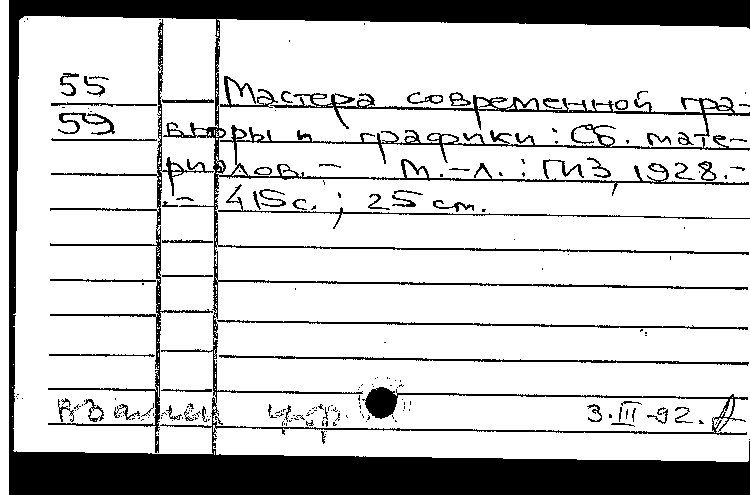 55 Мастера современной гра-
59 вюры и графики: Сб. мате-
риалов. - М.-Л.: ГИЗ, 1928.-
.- 415 с.; 25 см.
Взамен утр. 3.III-92.